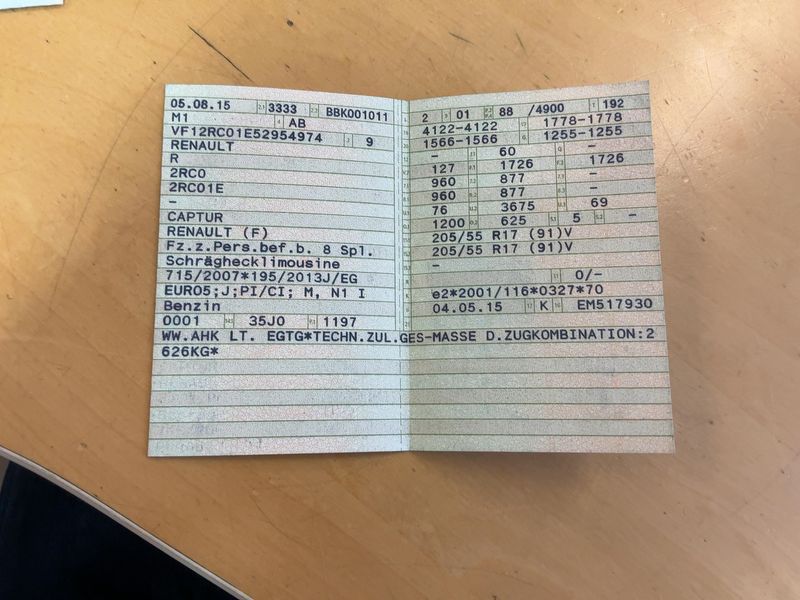 05.08.15 3333 BBK001011
M1 AB
VF12RC01E52954974 9
RENAULT
R
2RC0
2RC01E
–
CAPTUR
RENAULT (F)
Fz.z.Pers.bef.b. 8 Spl.
Schräghecklimousine
715/2007*195/2013J/EG
EURO5;J;PI/CI; M, N1 I
Benzin
0001 35J0 1197
2 01 88 /4900 192
4122-4122 1778-1778
1566-1566 1255-1255
– 60 –
127 1726 1726
960 877 –
960 877 –
76 3675 69
1200 625 5 –
205/55 R17 (91)V
205/55 R17 (91)V
–
0/-
e2*2001/116*0327*70
04.05.15 K EM517930
WW.AHK LT. EGTG*TECHN.ZUL.GES-MASSE D.ZUGKOMBINATION:2
626KG*